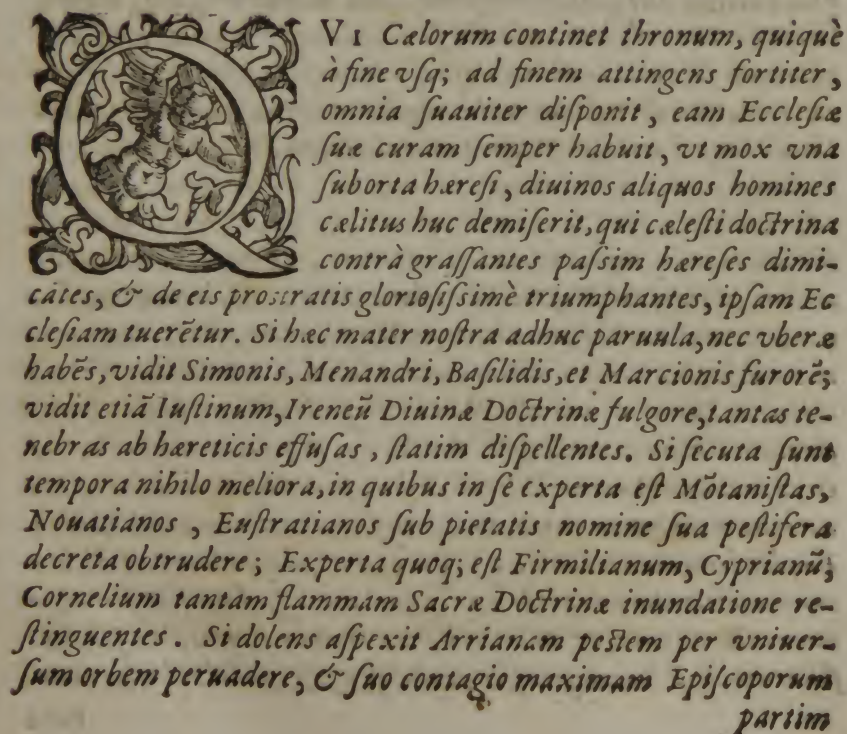 QVI Cælorum continet thronum, quiquè
à fine vſq; ad finem attingens fortiter,
omnia ſuauiter diſponit, eam Eccleſiæ
ſuæ curam ſemper habuit, vt mox vna
ſuborta hæreſi, diuinos aliquos homines
cælitus huc demiſerit, qui cæleſti doctrina
contrà graſſantes paſsim hæreſes dimi-
cātes, & de eis proſtratis glorioſiſsimè triumphantes, ipſam Ec
cleſiam tuerētur. Si hæc mater noſtra adhuc paruula, nec vberæ
habēs, vidit Simonis, Menandri, Baſilidis, et Marcionis furorē;
vidit etiā Iuſtinum, Ireneū Diuinæ Doctrinæ fulgore, tantas te-
nebras ab hæreticis effuſas, ſtatim diſpellentes. Si ſecuta ſunt
tempora nihilo meliora, in quibus in ſe experta eſt Mōtaniſtas,
Nouatianos, Euſtratianos ſub pietatis nomine ſua peſtifera
decreta obtrudere; Experta quoq; eſt Firmilianum, Cyprianū,
Cornelium tantam flammam Sacræ Doctrinæ inundatione re-
ſtinguentes. Si dolens aſpexit Arrianam peſtem per vniuer-
ſum orbem peruadere, & ſuo contagio maximam Epiſcoporum
partim